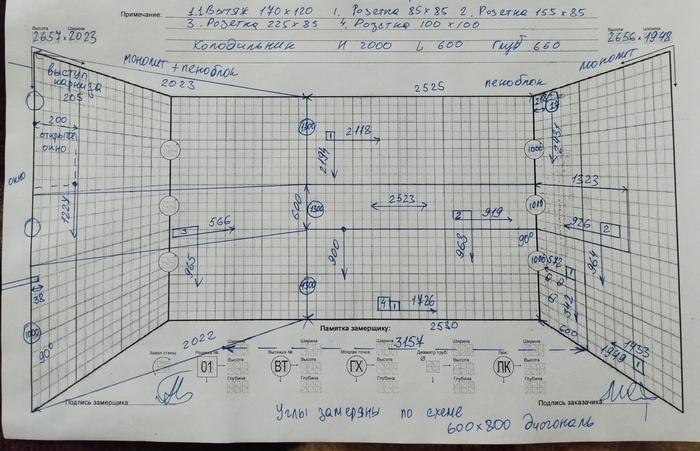 Примечание: 1.1. Вытяж 140 x 120 1. Розетка 85 x 85 2. Розетка 155 x 85
3. Розетка 225 x 85 4. Розетка 100 x 100
Холодильник H 2000 L 600 Глуб 660
Высота Ширина
2657 x 2023
Высота Ширина
2656 x 1948
монолит + пеноблок
2023
2525
пеноблок
монолит
выступ карниза
205
200
открытое окно
окно
1224
38
1000
90°
3
566
965
1300
1
2118
2194
600
1300
2523
900
2
919
963
1300
4 1
1726
2530
1000
1010
1000
90°
2431
1323
926
2
964
572
1
342
600
1433
1949
1
2022
Памятка замерщику:
3157
Завал стены
Розетка №
01
Высота
Ширина
Глубина
Вытяжка №
ВТ
Высота
Ширина
Глубина
Мощная точка
ГХ
Высота
Ширина
Глубина
Диаметр труб
Люк:
ЛК
Высота
Ширина
Глубина
Подпись замерщика:
Подпись заказчика:
Углы замеряны по схеме
600 x 800 диагональ